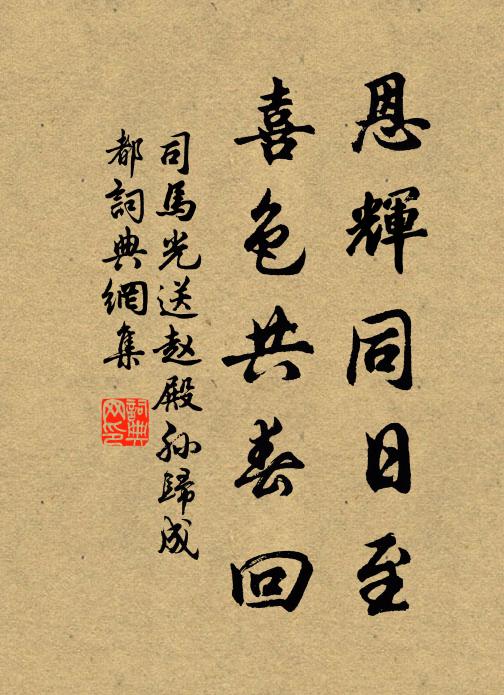 恩輝同日至
喜色共春回
司馬光送赵殿孙歸成
都詞典網集
詞典
网印